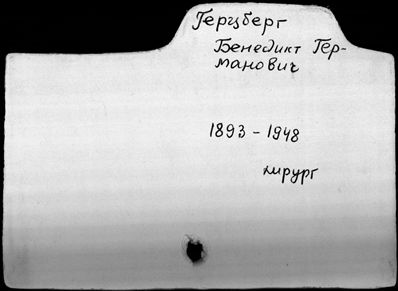 Герцберг
Бенедикт Гер-
манович
1893 - 1948
хирург